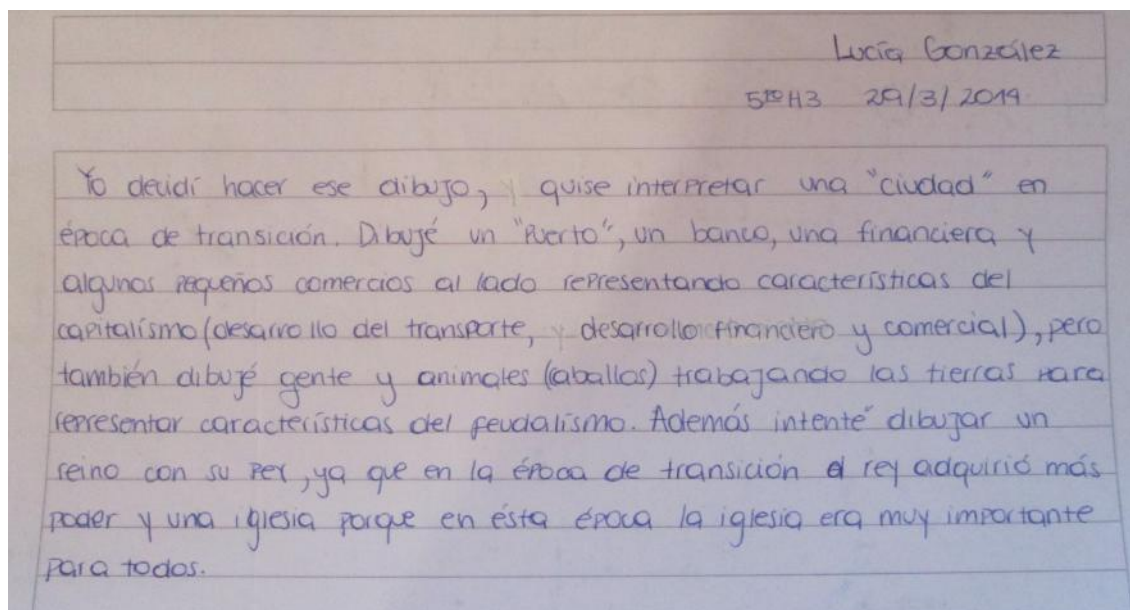 Lucía González
5to H3 29/3/2019
Yo decidí hacer ese dibujo, y quise interpretar una "ciudad" en
época de transición. Dibujé un "Puerto", un banco, una financiera y
algunos pequeños comercios al lado representando características del
capitalismo (desarrollo del transporte, y desarrollo financiero y comercial), pero
también dibujé gente y animales (caballos) trabajando las tierras para
representar características del feudalismo. Además intenté dibujar un
reino con su rey, ya que en la época de transición el rey adquirió más
poder y una iglesia porque en ésta época la iglesia era muy importante
para todos.